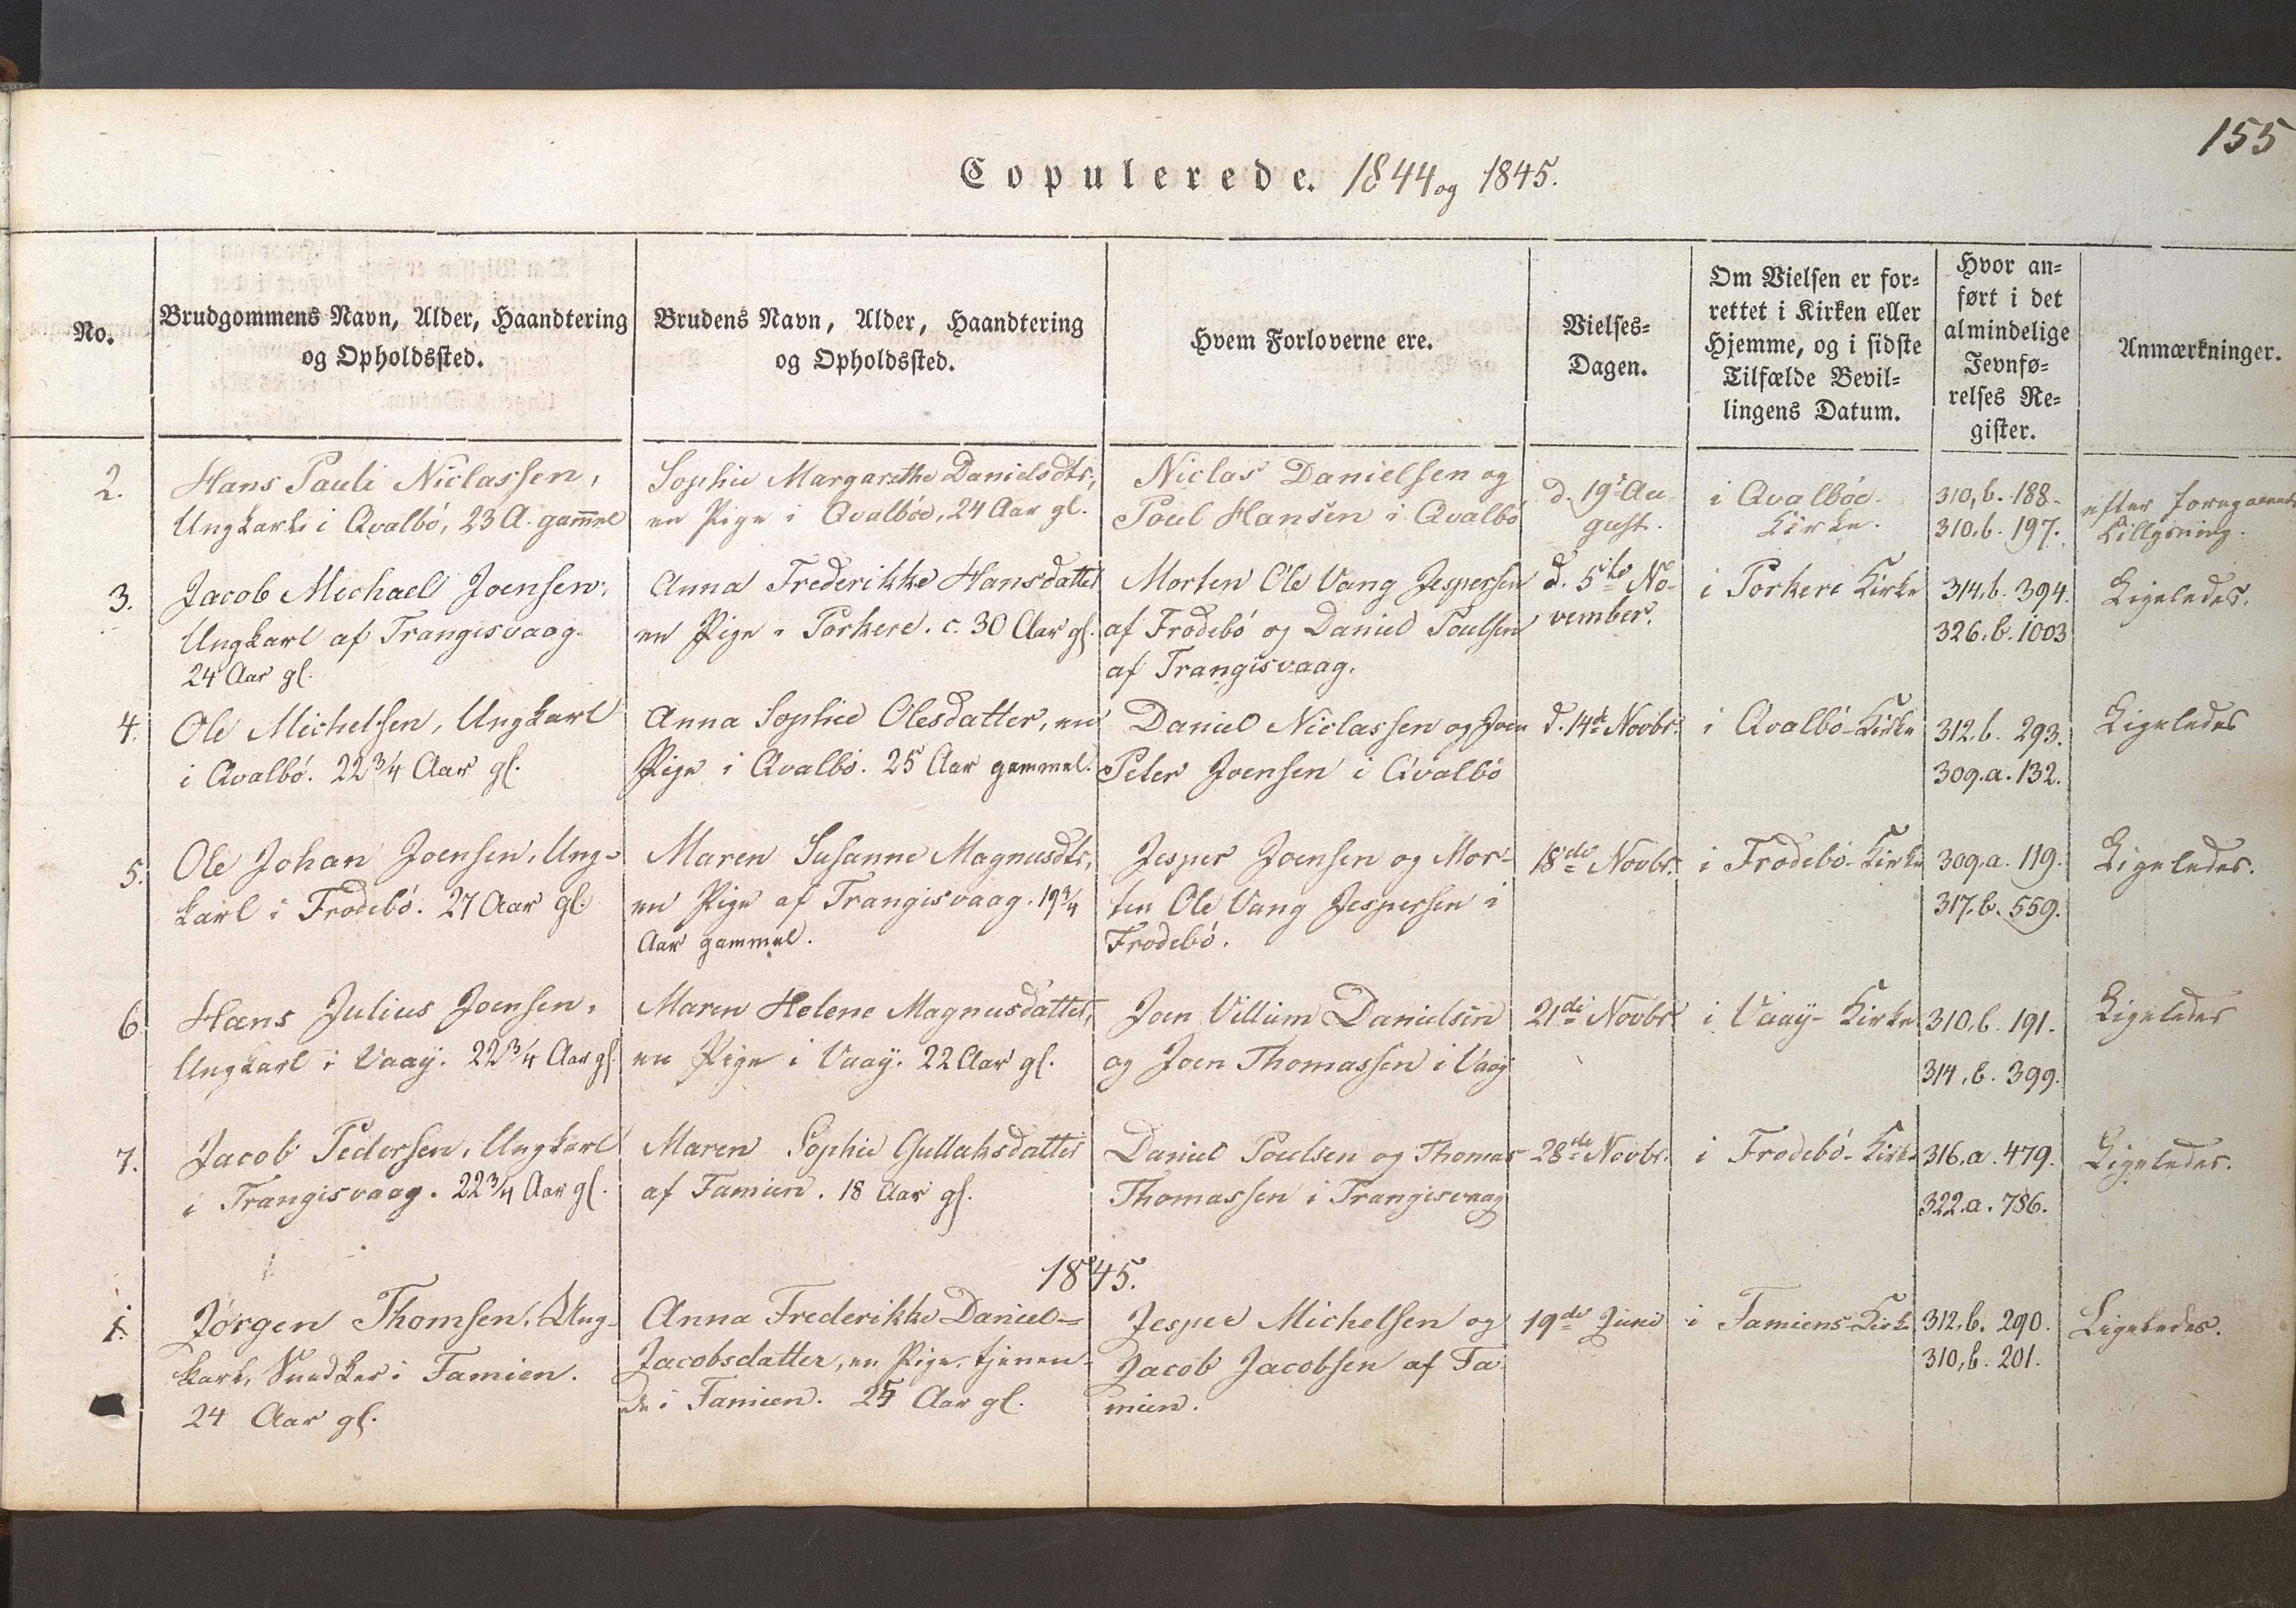 155
Copulerede. 1844 og 1845.
No.
Brudgommens Navn, Alder, Haandtering
og Opholdssted.
Brudens Navn, Alder, Haandtering
og Opholdssted.
Hvem Forloverne ere.
Vielses-
Dagen.
Om Vielsen er for-
rettet i Kirken eller
Hjemme, og i sidste
Tilfælde Bevil-
lingens Datum.
Hvor an-
ført i det
almindelige
Jevnfø-
relses Re-
gister.
Anmærkninger.
2.
Hans Pauli Niclassen,
Ungkarl i Qvalbó, 23 A. gam̄el
Sophie Margarethe Danielsdtr,
en Pige i Qvalbóe, 24 Aar gl.
Niclas Danielsen og
Poul Hansen i Qvalbó
d. 19s Au-
gust.
i Qvalbóe
Kirke.
310, b. 188.
310. b. 197.
efter foregaaende
Tillysning.
3.
Jacob Michael Joensen,
Ungkarl af Trangisvaag.
24 Aar gl.
Anna Frederikke Hansdatter
en Pige i Porkere. c. 30 Aar gl.
Morten Ole Vang Jespersen
af Frodebó og Daniel Poulsen
af Trangisvaag.
d. 5te No-
vember.
i Porkere Kirke
314. b. 394.
326. b. 1003
Ligeledes.
4.
Ole Michelsen, Ungkarl
i Qvalbó. 22 3/4 Aar gl.
Anna Sophie Olesdatter, en
Pige i Qvalbó. 25 Aar gammel.
Daniel Niclassen og Joen
Peter Joensen i Qvalbó
d. 14de Novbr.
i Qvalbó-Kirke
312. b. 293.
309. a. 132.
Ligeledes
5.
Ole Johan Joensen, Ung-
karl i Frodebó. 27 Aar gl.
Maren Susanne Magnusdtr,
en Pige af Trangisvaag. 19 3/4
Aar gammel.
Jesper Joensen og Mor-
ten Ole Vang Jespersen i
Frodebó.
18de Novbr.
i Frodebó-Kirke
309. a. 119.
317. b. 559.
Ligeledes.
6.
Hans Julius Joensen,
Ungkarl i Vaaÿ. 22 3/4 Aar gl.
Maren Helene Magnusdatter,
en Pige i Vaaÿ. 22 Aar gl.
Joen Villum Danielsen
og Joen Thomassen i Vaaÿ
21de Novbr
i Vaaÿ-Kirke
310. b. 191.
314. b. 399.
Ligeledes
7.
Jacob Pedersen, Ungkarl
i Trangisvaag. 22 3/4 Aar gl.
Maren Sophie Gullaksdatter
af Famien. 18 Aar gl.
Daniel Poulsen og Thomas
Thomassen i Trangisvaag
28de Novbr.
i Frodebó-Kirke
316. a. 479.
322. a. 786.
Ligeledes.
1845.
1.
Jorgen Thomsen, Ung-
karl, Snedker i Famien.
24 Aar gl.
Anna Frederikke Daniel-
Jacobsdatter, en Pige, tjenen-
de i Famien. 25 Aar gl.
Jesper Michelsen og
Jacob Jacobsen af Fa-
mien.
19de Juni
i Famiens-Kirke
312. b. 290.
310, b. 201.
Ligeledes.